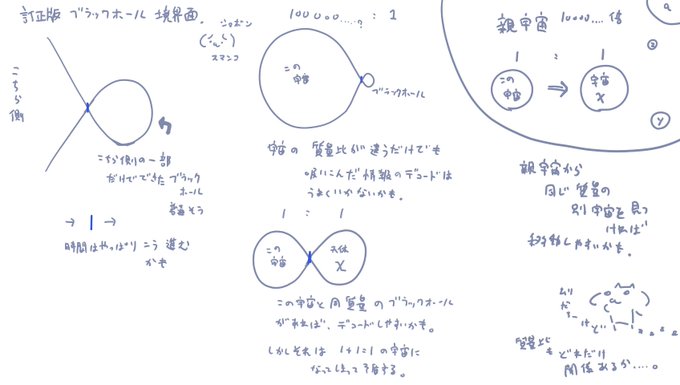 訂正版 ブラックホール 境界面.
ショボン
スマンコ
こちら側
こちら側の一部
だけでできた ブラック
ホール
→ | →
時間はやっぱり こう 進む
かも
100000....? : 1
この
宇宙
ブラックホール
宇宙の 質量比が違うだけでも
吸いこんだ情報のデコードは
うまくいかないかも。
1 : 1
この
宇宙
天体
X
この宇宙と同質量のブラックホール
があれば、デコードしやすいかも。
しかしそれは 1+1=1の宇宙に
なってしまって矛盾する。
親宇宙 10000....倍
a
z
1 : 1
この
宇宙
⇒
宇宙
x
y
親宇宙から
同じ質量の
別宇宙を見つ
ければ
移動しやすいかも。
ムリ
だ
けど
質量比
も どれだけ
関係あるか....。